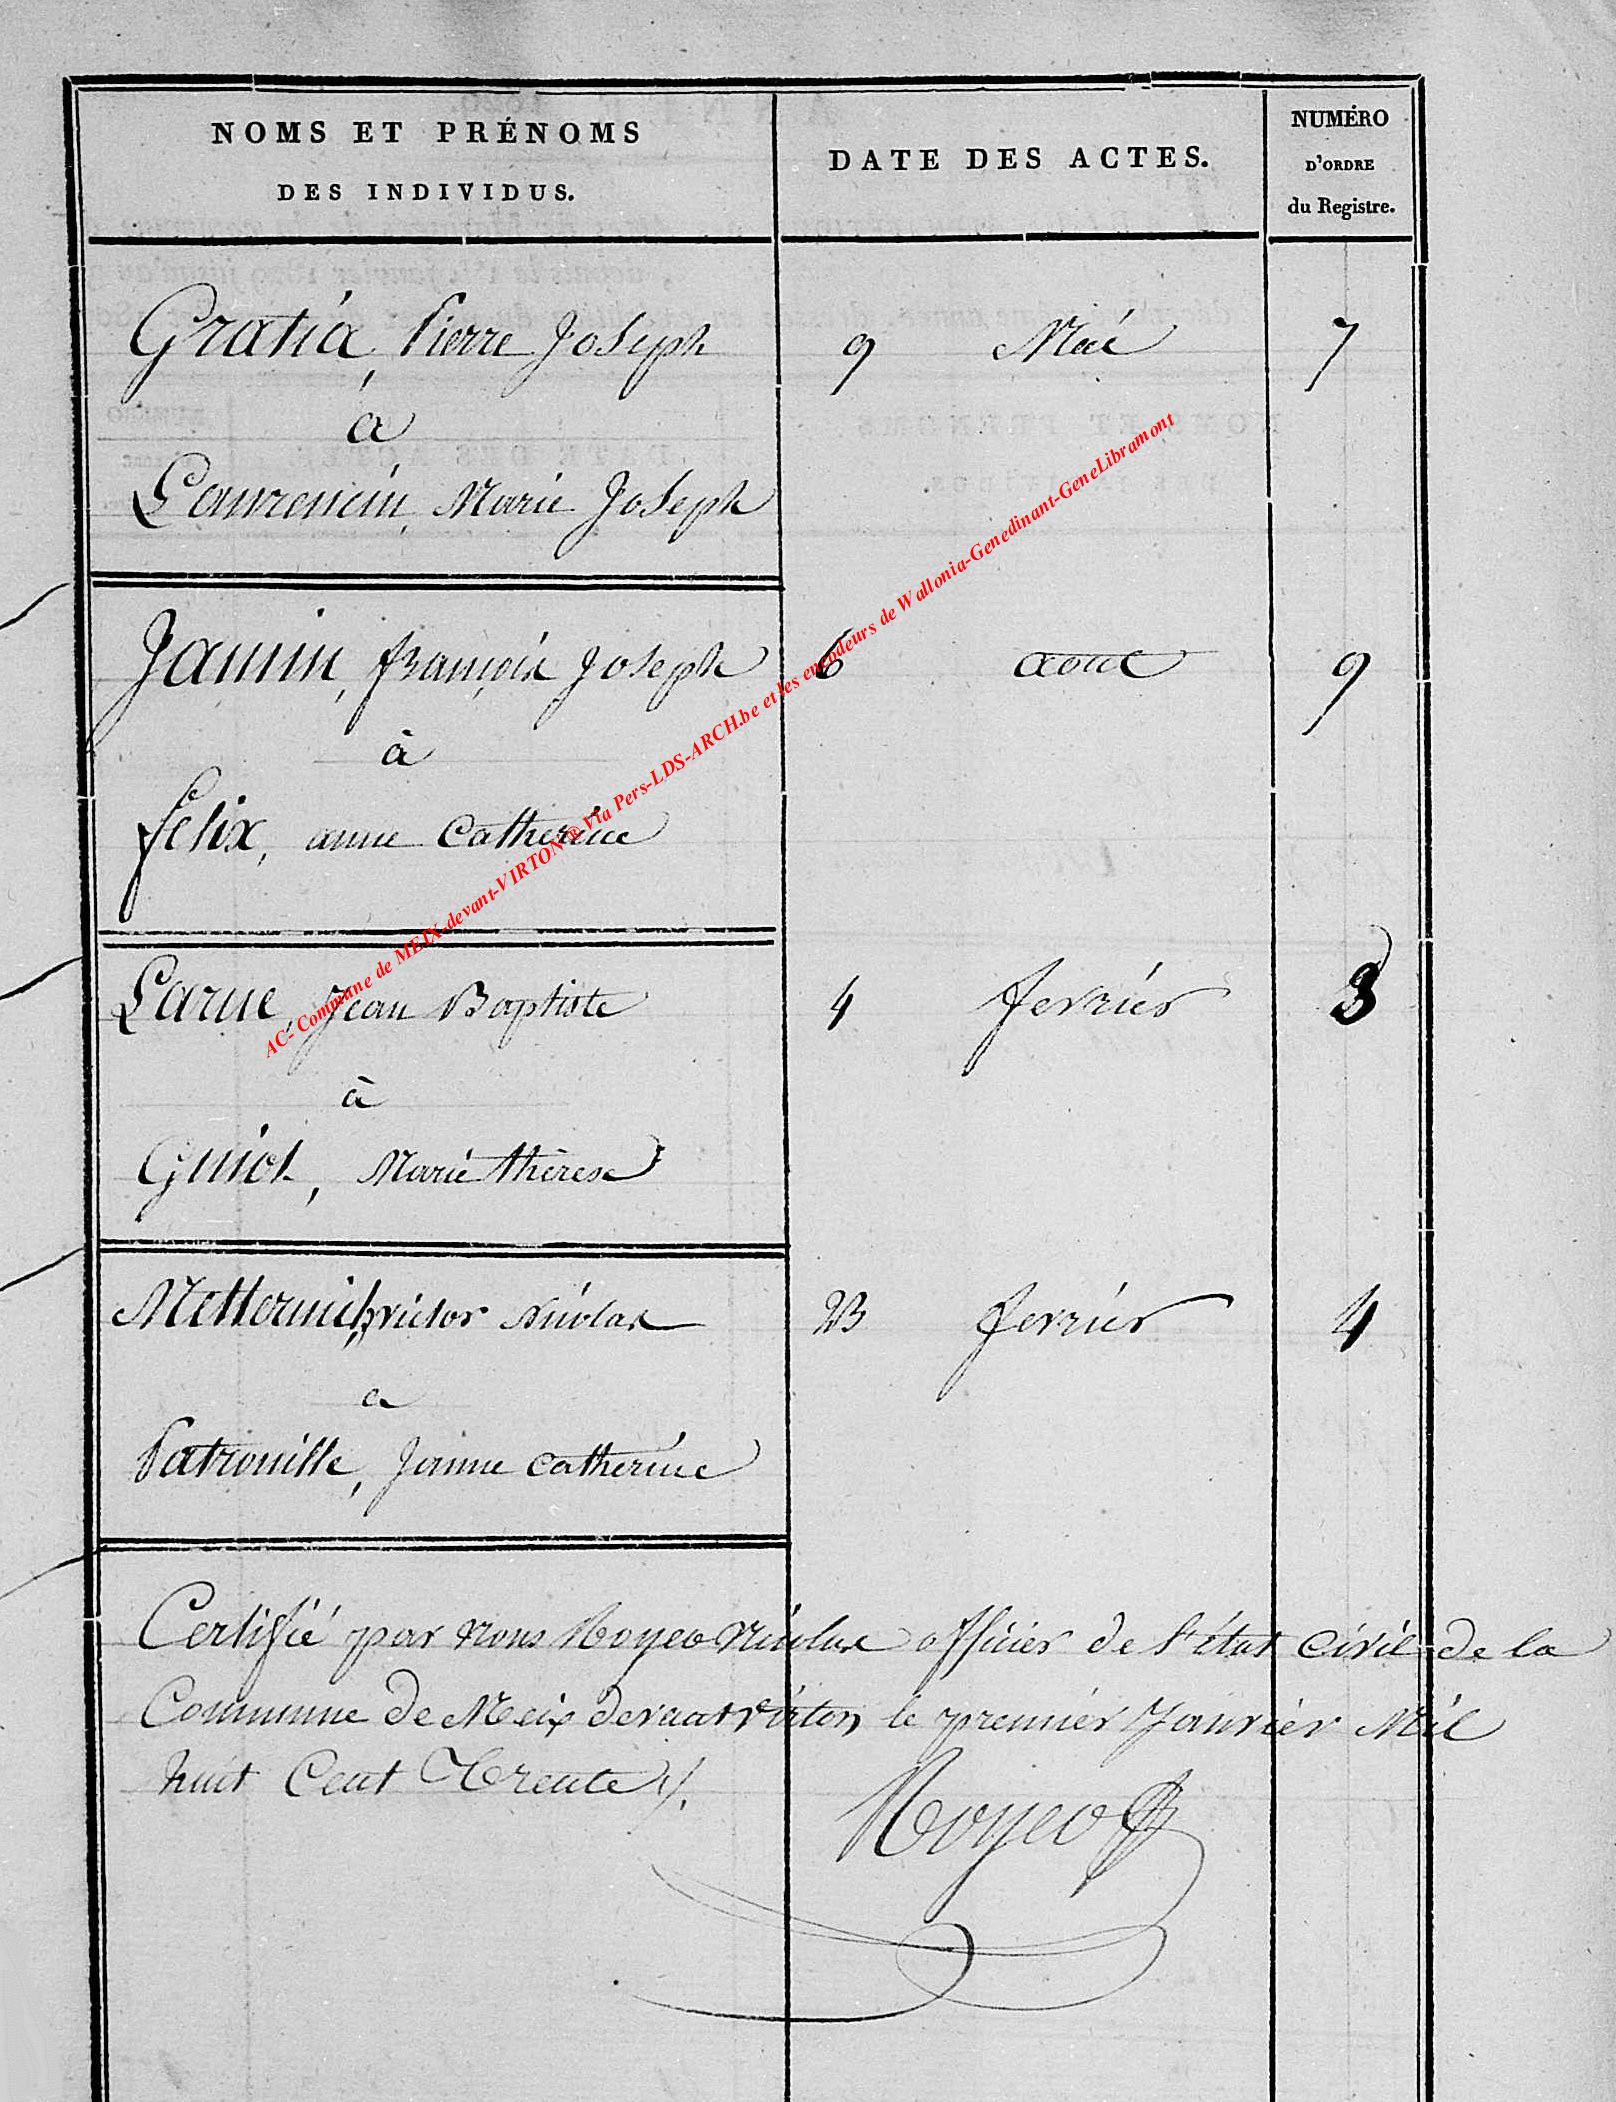 NOMS ET PRÉNOMS
DES INDIVIDUS.
DATE DES ACTES.
NUMÉRO
D'ORDRE
du Registre.
Gratia, Pierre Joseph 9 Mai 7
à
Laurencin, Marie Joseph
Jamin, françois Joseph 6 aout 9
à
félix, anne Catherine
Larue, Jean Baptiste 4 fevrier 3
à
Guiot, Marie thérese
Metternich, victor Nicolas 23 fevrier 4
a
Patrouille, Jeanne catherine
Certifié par nous Noyeo Nicolas officier de l'état civil de la
Commune de Meix devant virton le premier Janvier Mil
huit Cent Trente /.
Noyeo
AC- Commune de MEIX-devant-VIRTON ® Via Pers-LDS-ARCH.be et les encodeurs de Wallonia-Genedinant-GeneLibramont